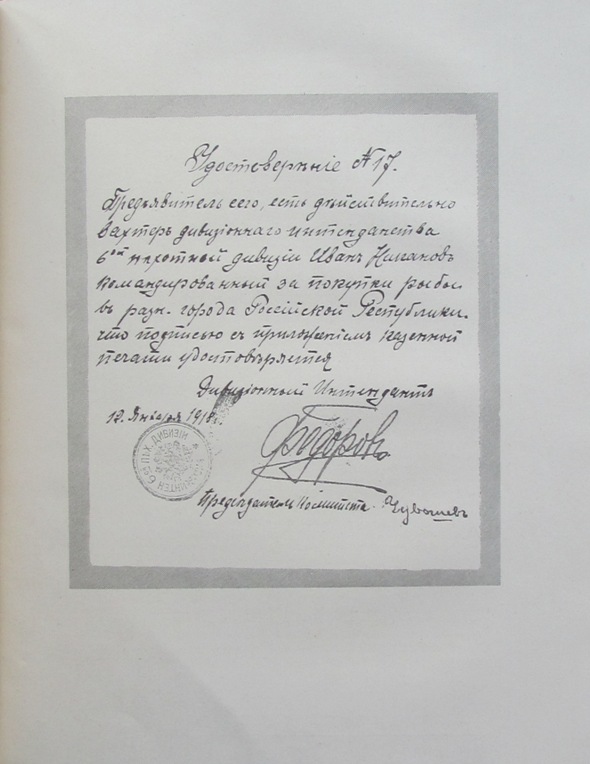 Удостоверѣніе № 17.
Предъявитель сего, есть дѣйствительно
вахтеръ дивизіоннаго интендантства
6ой пехотной дивизіи Иванъ
командированный за покупки рыбы
въ разн. города Россійской Республики.
что подписью съ приложеніемъ казенной
печати удостовѣряется
Дивизіонный Интендантъ
12. Января 1918 г.
Федоровъ
6ой ПѢХ. ДИВИЗІИ
Председатель Комитета Чувашевъ